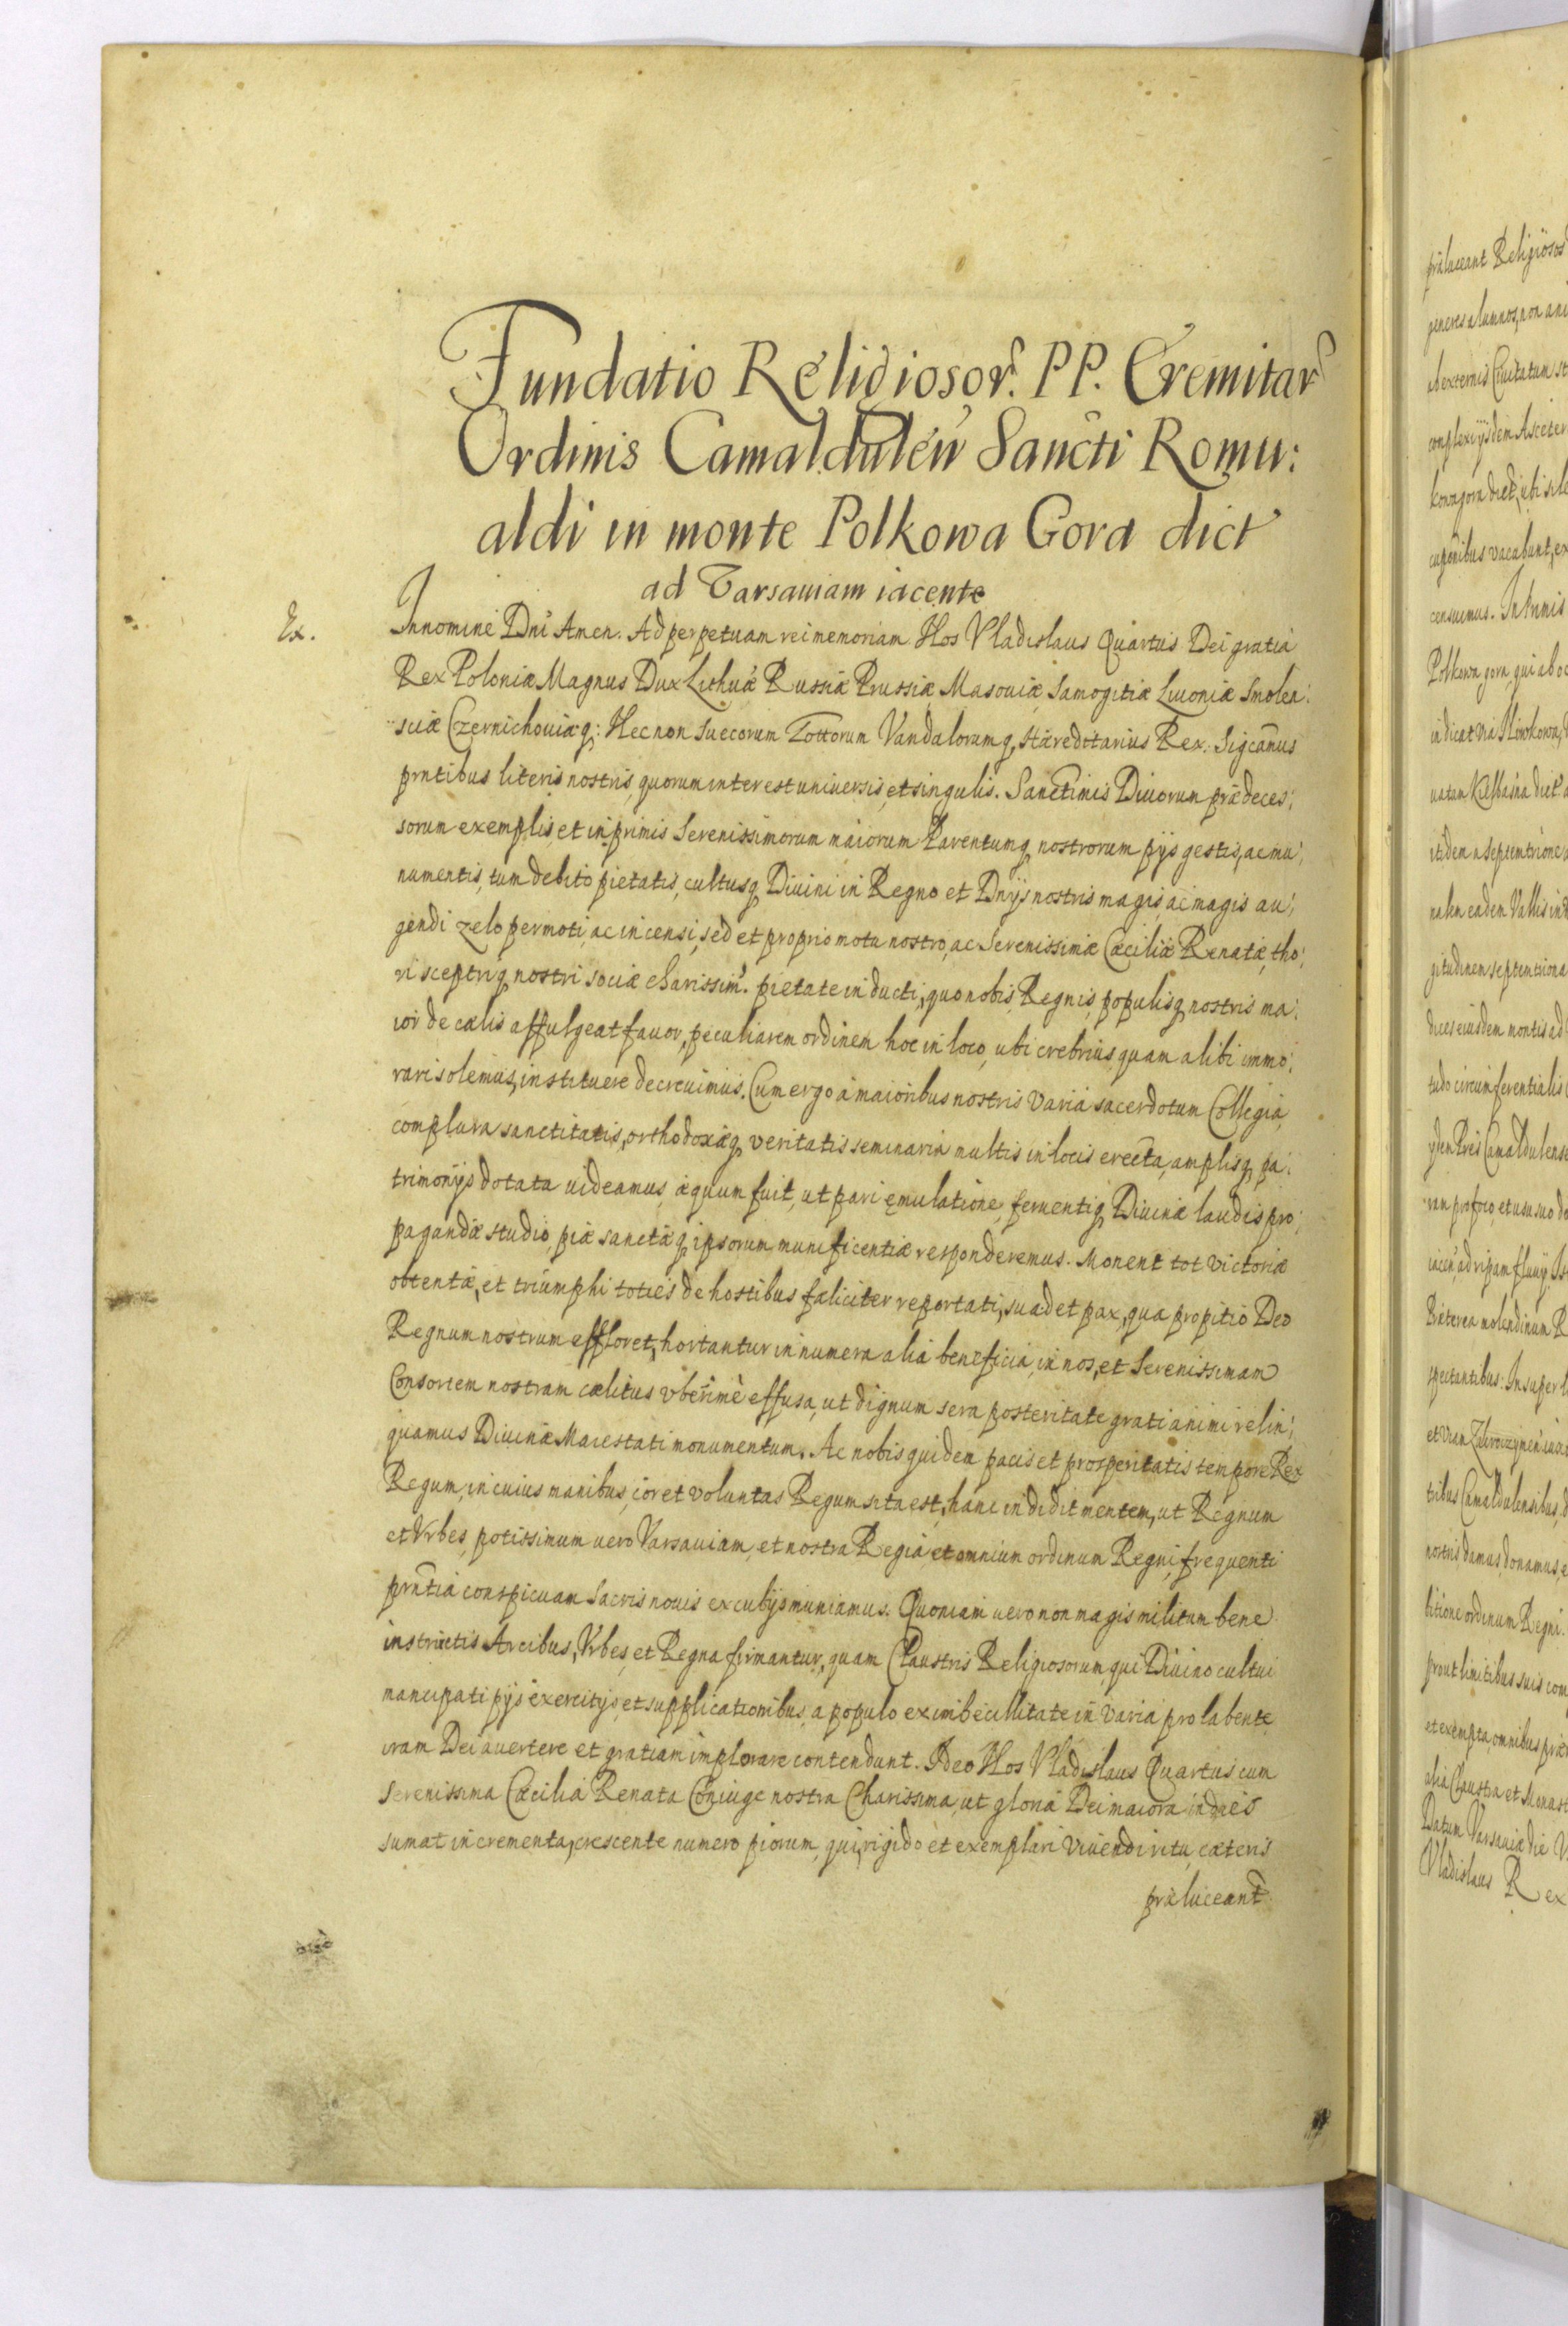 Fundatio Religiosor. PP. Eremitar
Ordinis Camaldulen Sancti Romu:
aldi in monte Polkowa Gora dict
ad Varsauiam iacente
Ex.
In nomine Dni Amen. Ad perpetuam rei memoriam Nos Vladislaus Quartus Dei gratia
Rex Poloniæ Magnus Dux Lithuæ Russiæ Prussiæ Masouiæ Samogitiæ Liuoniæ Smolen:
sciæ Czernichouiæq: Nec non Suecorum Gottorum Vandalorumq, Hæreditarius Rex. Sigcamus
pntibus literis nostris, quorum interest uniuersis, et singulis. Sanctimis Diuorum prædeces:
sorum exemplis, et in primis Serenissimorum maiorum Parentumq, nostrorum pijs gestis, ac mu:
numentis, tum debito pietatis, cultusq, Diuini in Regno et Dnijs nostris magis, ac magis au:
gendi zelo permoti, ac incensi, sed et proprio motu nostro, ac Serenissimæ Cæciliæ Renatæ, tho:
ri sceptriq, nostri sociæ charissim. pietate inducti, quo nobis, Regnis, populisq, nostris ma:
ior de cælis affulgeat fauor, peculiarem ordinem hoc in loco, ubi crebrius, quam alibi immo:
rari solemus, instituere decreuimus. Cum ergo à maioribus nostris varia sacerdotum Collegia,
complura sanctitatis, orthodoxæq, veritatis seminaria multis in locis erecta, amplisq, pa:
trimonijs dotata uideamus, æquum fuit, ut pari ęmulatione, feruentiq, Diuinæ laudis pro:
pagandæ studio, piæ sanctæq, ipsorum munificentiæ responderemus. Monent tot victoriæ
obtentæ, et triumphi toties de hostibus fæliciter reportati, suadet pax, qua propitio Deo
Regnum nostrum effloret, hortantur innumera alia beneficia, in nos, et Serenissimam
Consortem nostram cælitus vberrimè effusa, ut dignum sera posteritate grati animi relin:
quamus Diuinæ Maiestati monumentum. Ac nobis quidem pacis et prosperitatis tempore Rex
Regum, in cuius manibus, cor et voluntas Regum sita est, hanc indidit mentem, ut Regnum
et Vrbes, potissimum uero Varsauiam, et nostra Regia, et omnium ordinum Regni, frequenti
prntia conspicuam Sacris nouis excubijs muniamus. Quoniam uero non magis militum bene
instructis Arcibus, Vrbes, et Regna firmantur, quam Claustris Religiosorum, qui Diuino cultui
mancipati pijs exercitijs, et supplicationibus, a populo ex imbecillitate in varia prolabente
iram Dei auertere et gratiam implorare contendunt. Ideo Nos Vladislaus Quartus cum
Serenissima Cæcilia Renata Coniuge nostra Charissima, ut gloria Dei maiora in dies
sumat incrementa, crescente numero piorum, qui, rigido et exemplari viuendi ritu, cæteris
præluceant
præluceant Religiosos
generes alumnos, non ani
ab externis Ciuitatum st
complexi ijsdem Asceter
kowa gora dict, ubi
vacabunt, ex
censuimus. In
Polkowa gora, qui ab oc
indicat via
dict
itidem a Septemtrione
eadem Vallis in
gitudinem septemtriona
dices eiusdem montis ad
tudo circumferentialis
Camaldulense
ram pro foco, et usu suo do
ad ripam fluuij
Præterea molendinum R
spectantibus. Insuper
et vran
tribus Camaldulensibus, d
nostris damus, donamus, e
bitione ordinum Regni.
prout limitibus suis com
et exempta, omnibus præ
alia Claustra et Monast
Datum Varsauiæ die V
Vladislaus Rex